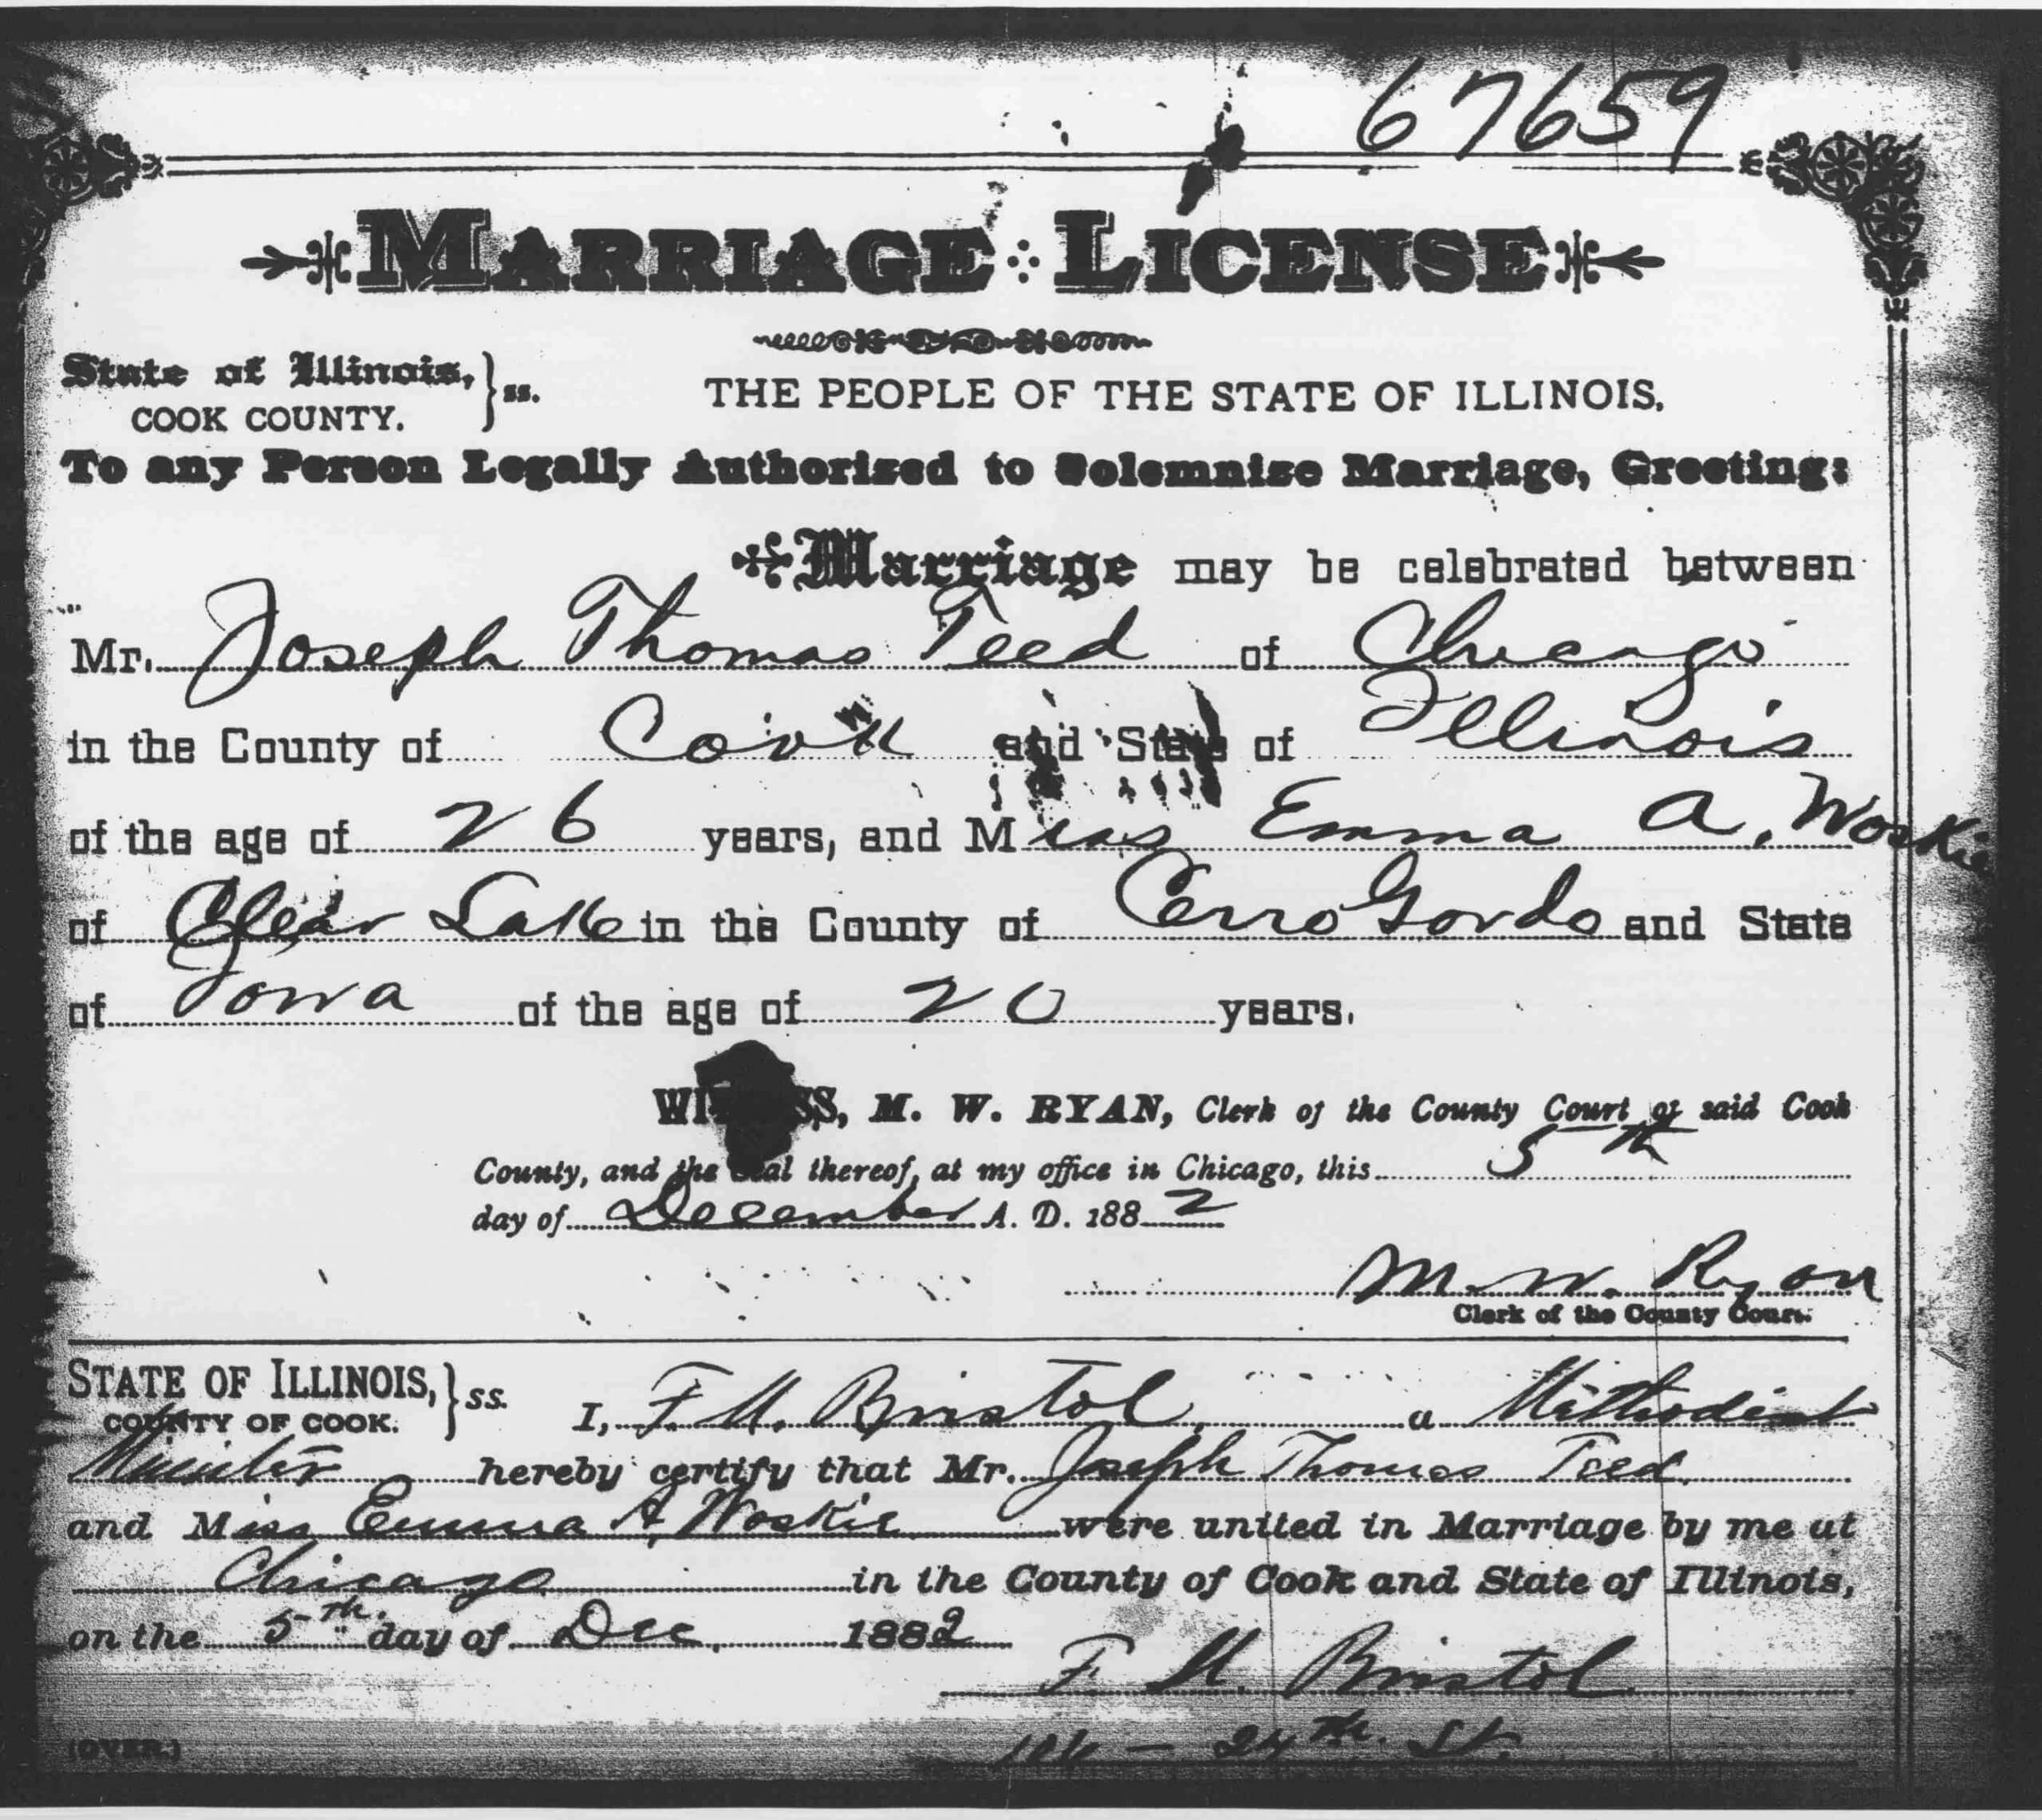 67659
MARRIAGE LICENSE
State of Illinois, } ss.
COOK COUNTY.
THE PEOPLE OF THE STATE OF ILLINOIS.
To any Person Legally Authorized to Solemnize Marriage, Greeting:
Marriage may be celebrated between
Mr. Joseph Thomas Teed of Chicago
in the County of Cook and State of Illinois
of the age of 26 years, and Miss Emma A. Woskie
of Clear Lake in the County of Cerro Gordo and State
of Iowa of the age of 20 years.
WITNESS, M. W. RYAN, Clerk of the County Court of said Cook
County, and the seal thereof, at my office in Chicago, this 5th
day of December A. D. 1882
M. W. Ryan
Clerk of the County Court.
STATE OF ILLINOIS, } ss.
COUNTY OF COOK.
I, F. M. Bristol, a Methodist
Minister hereby certify that Mr. Joseph Thomas Teed
and Miss Emma A. Woskie were united in Marriage by me at
Chicago in the County of Cook and State of Illinois,
on the 5th. day of Dec. 1882
F. M. Bristol
24th. St.
(OVER.)